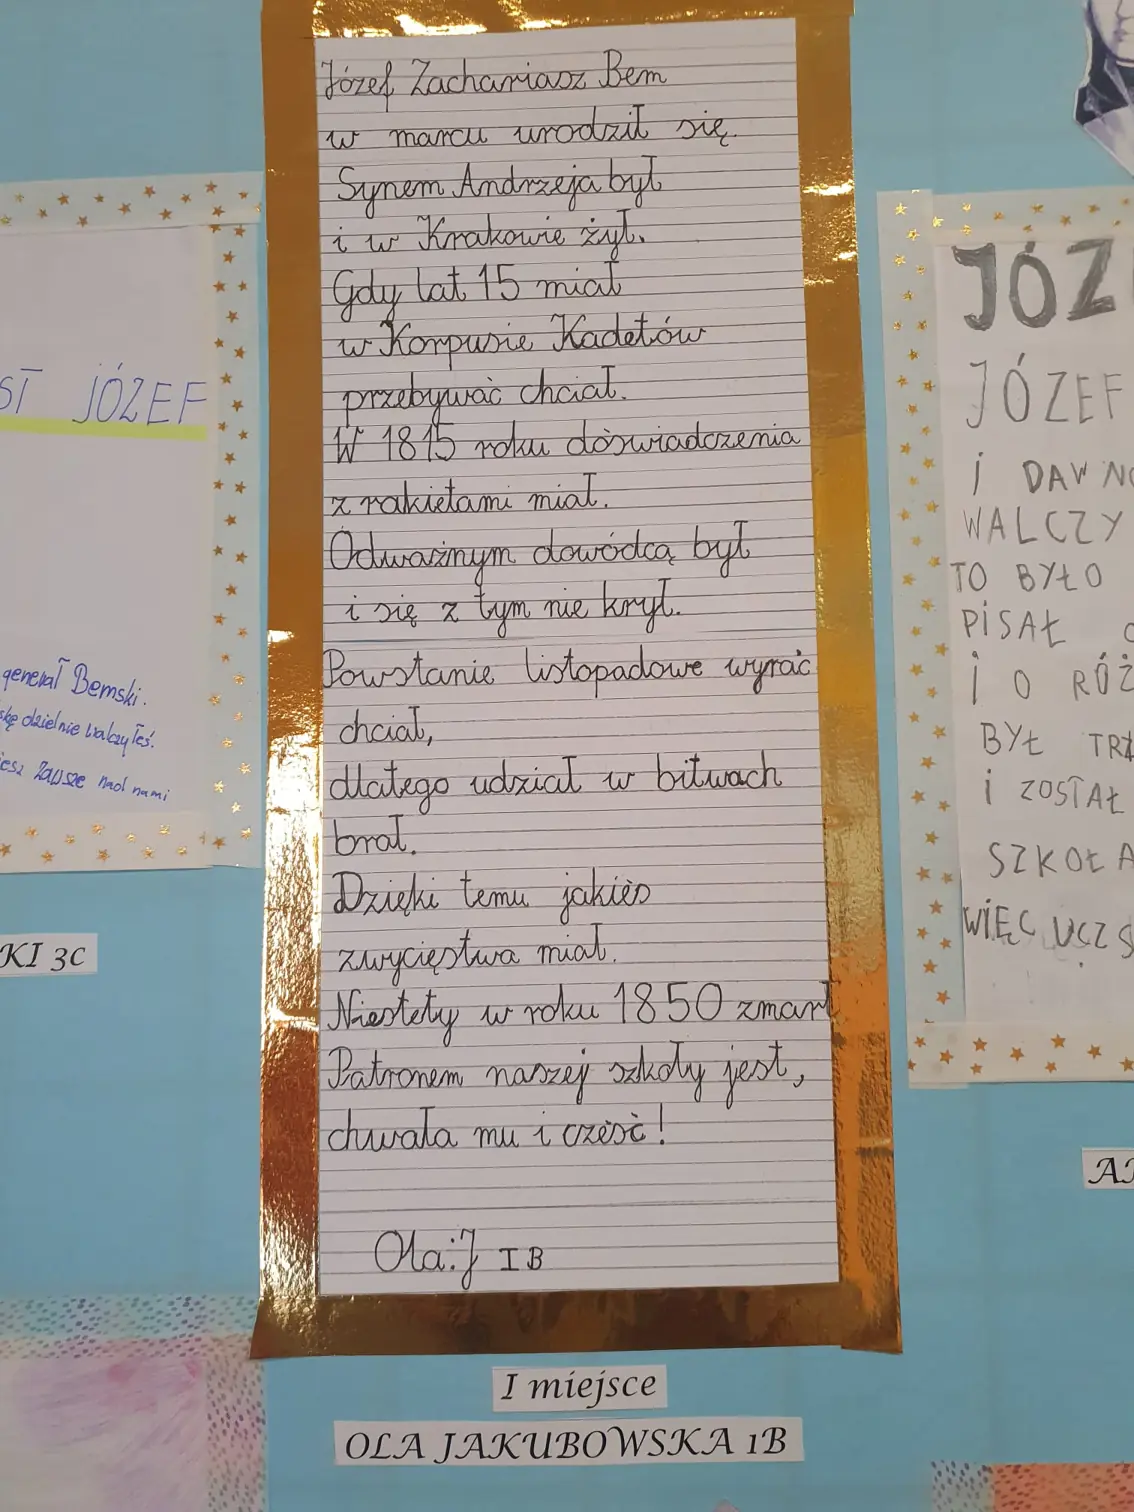 Józef Zachariasz Bem
w marcu urodził się.
Synem Andrzeja był
i w Krakowie żył.
Gdy lat 15 miał
w Korpusie Kadetów
przebywać chciał.
W 1815 roku doświadczenia
z rakietami miał.
Odważnym dowódcą był
i się z tym nie krył.
Powstanie listopadowe wyrać
chciał,
dlatego udział w bitwach
brał.
Dzięki temu jakieś
zwycięstwa miał.
Niestety w roku 1850 zmarł
Patronem naszej szkoły jest,
chwała mu i cześć!
Ola:J IB
I miejsce
OLA JAKUBOWSKA 1B
JÓZEF
generał Bemski.
dzielnie walczyłeś.
zawsze nad nami
KI 3C
JÓZ
JÓZEF
I DAWNO
WALCZY
TO BYŁO
PISAŁ
I O RÓŻ
BYŁ TRZ
I ZOSTAŁ
SZKOŁA
WIĘC UCZ